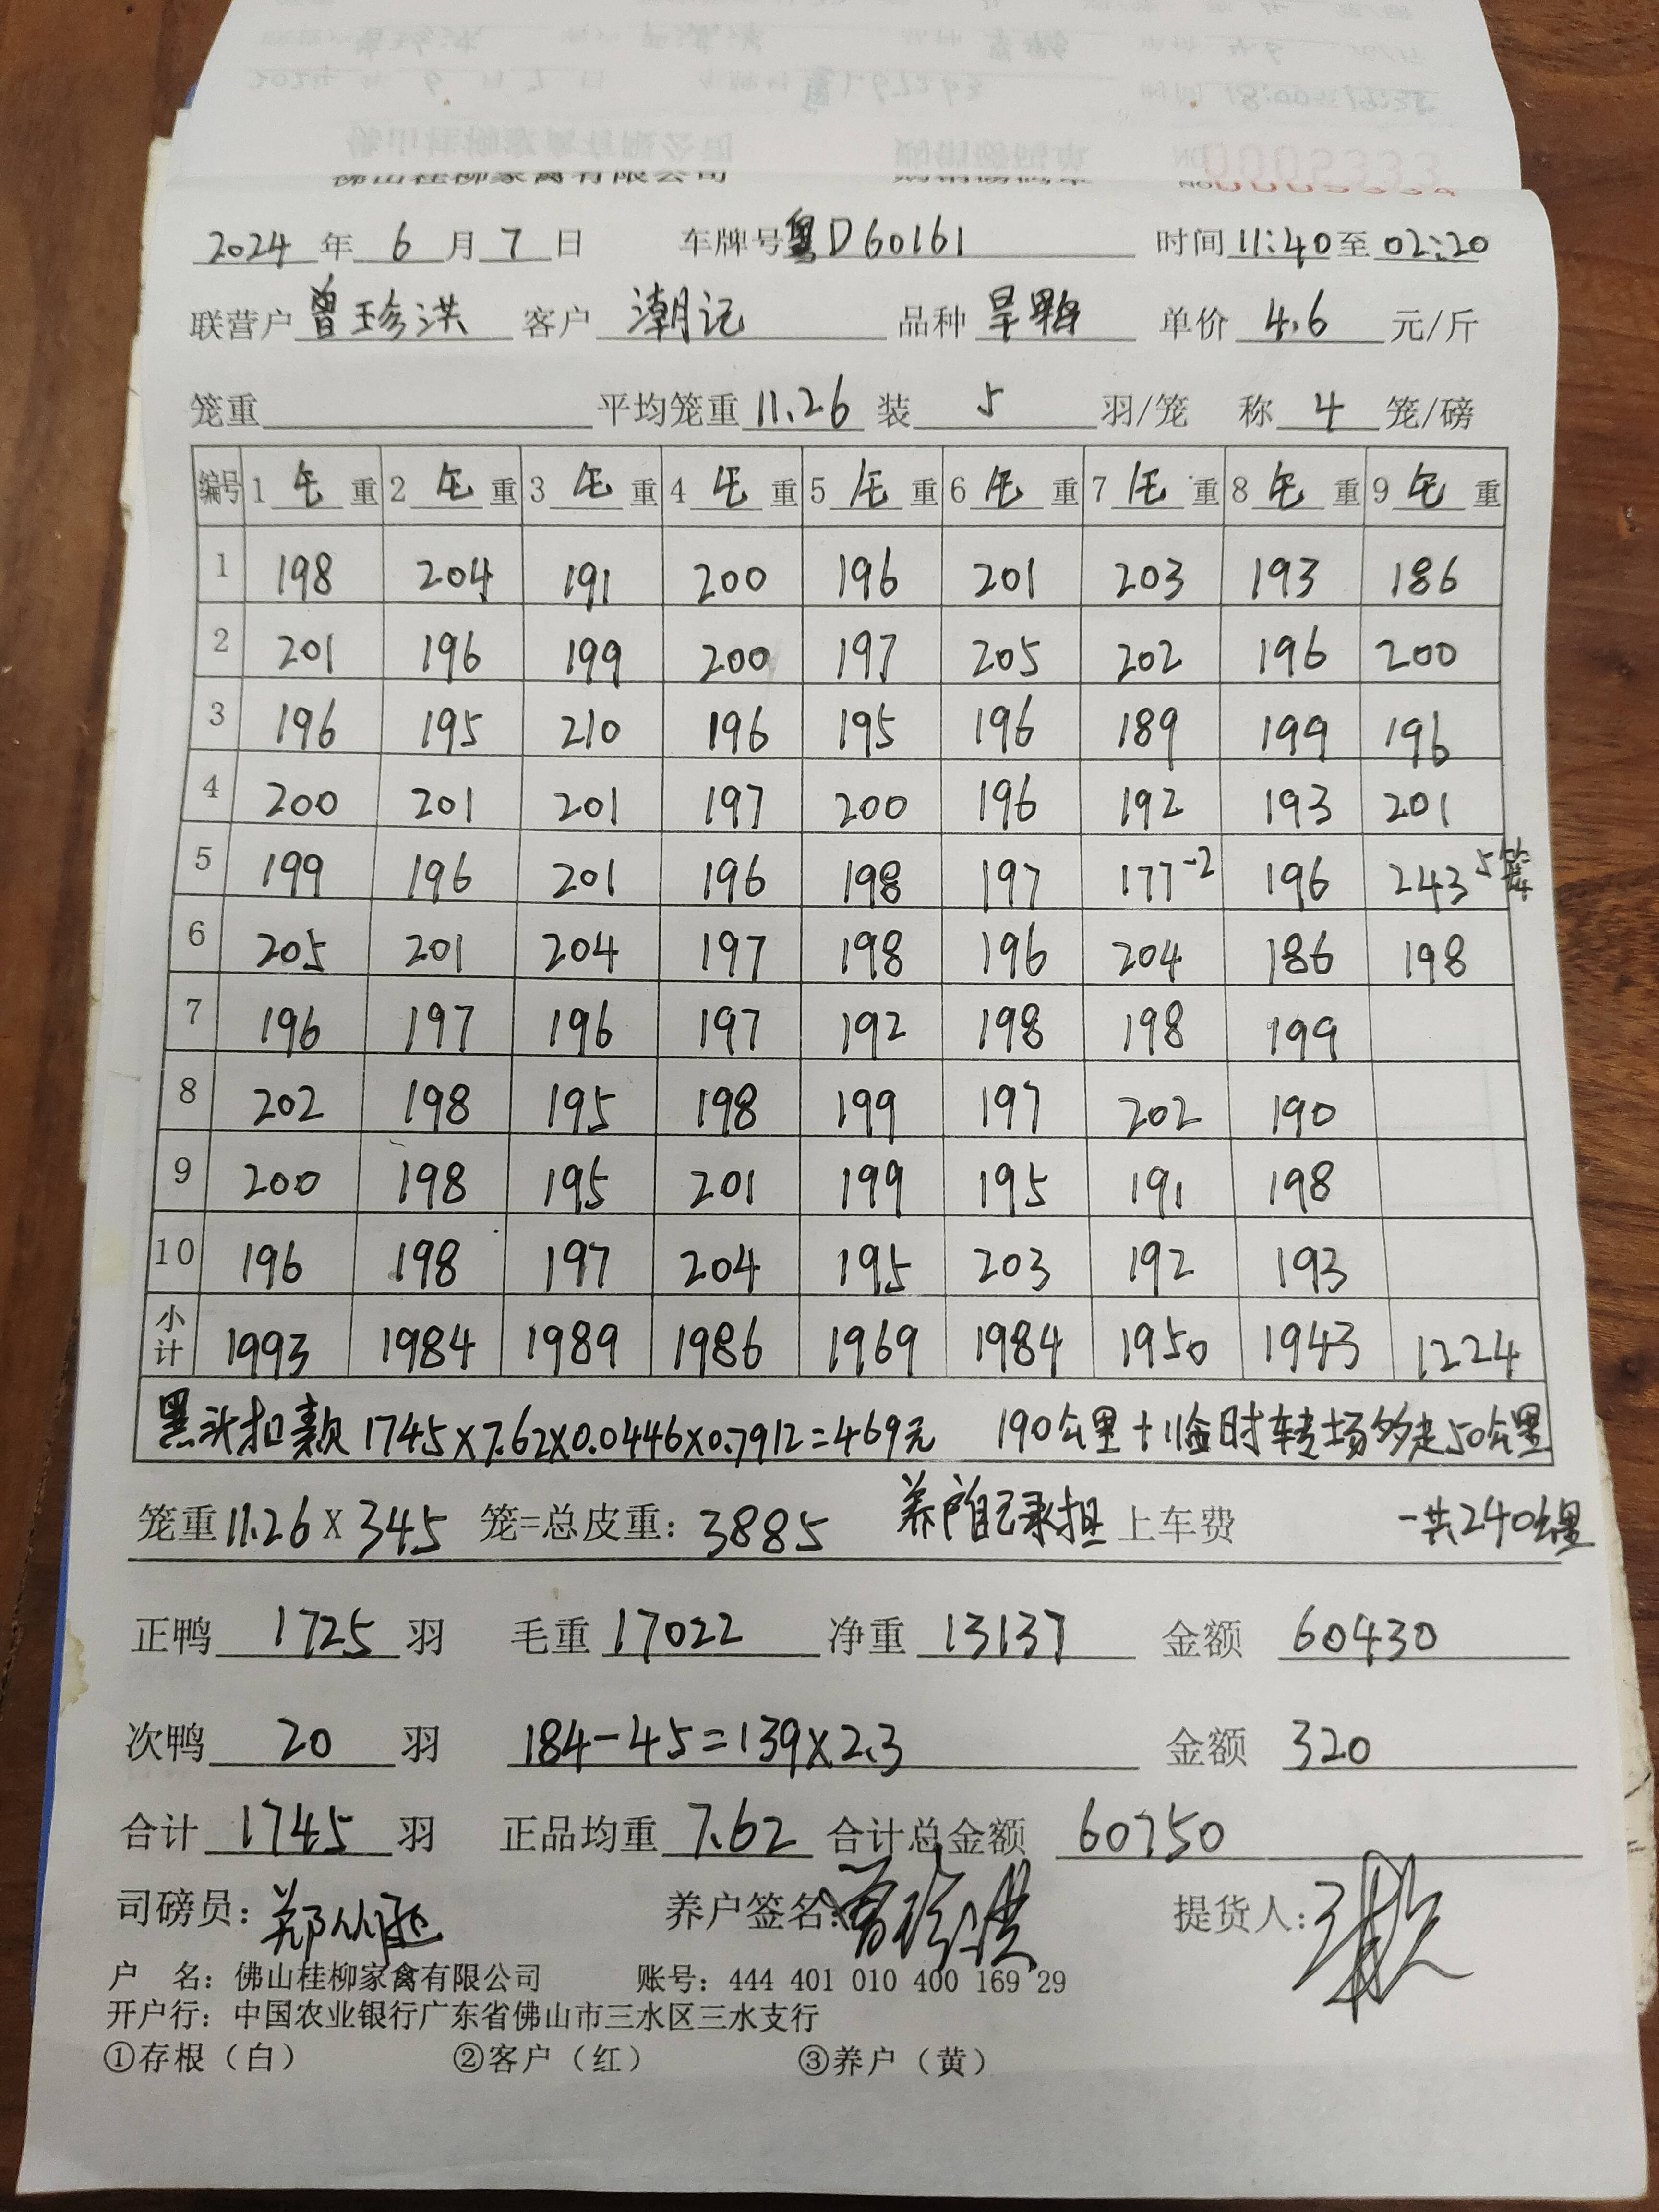 佛山桂柳家禽有限公司
2024 年 6 月 7 日 车牌号 粤D60161 时间 11:40 至 02:20
联营户 曾珍洪 客户 潮记 品种 旱鸭 单价 4.6 元/斤
笼重 平均笼重 11.26 装 5 羽/笼 称 4 笼/磅
编号 1 毛 重 2 毛 重 3 毛 重 4 毛 重 5 毛 重 6 毛 重 7 毛 重 8 毛 重 9 毛 重
1 198 204 191 200 196 201 203 193 186
2 201 196 199 200 197 205 202 196 200
3 196 195 210 196 195 196 189 199 196
4 200 201 201 197 200 196 192 193 201
5 199 196 201 196 198 197 177-2 196 243 5笼
6 205 201 204 197 198 196 204 186 198
7 196 197 196 197 192 198 198 199
8 202 198 195 198 199 197 202 190
9 200 198 195 201 199 195 191 198
10 196 198 197 204 195 203 192 193
小计 1993 1984 1989 1986 1969 1984 1950 1943 1224
黑头扣款 1745×7.62×0.0446×0.7912=469元 190公里+临时转场多走50公里
笼重 11.26 X 345 笼=总皮重: 3885 养户自己承担 上车费 一共240公里
正鸭 1725 羽 毛重 17022 净重 13137 金额 60430
次鸭 20 羽 184-45=139×2.3 金额 320
合计 1745 羽 正品均重 7.62 合计总金额 60750
司磅员: 养户签名: 曾珍洪 提货人:
户 名: 佛山桂柳家禽有限公司 账号: 444 401 010 400 169 29
开户行: 中国农业银行广东省佛山市三水区三水支行
①存根（白） ②客户（红） ③养户（黄）